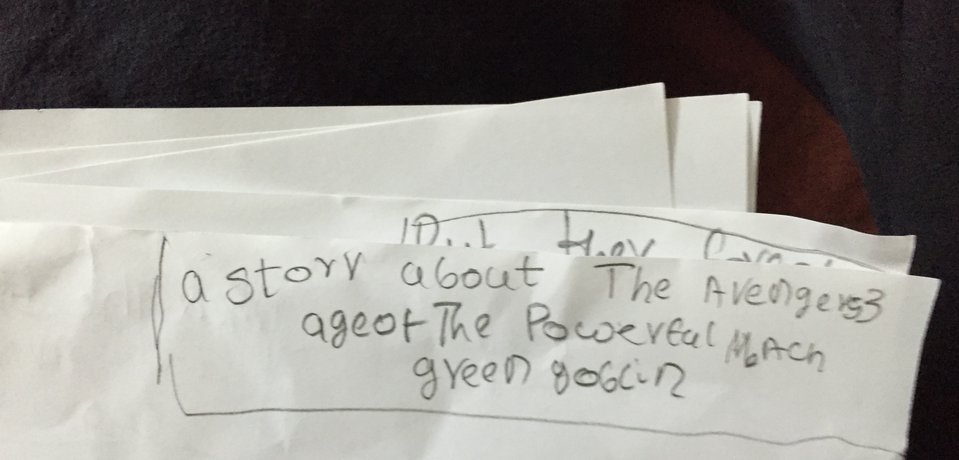 But they
a story about The Avengers3
ageof The Powerfal
green goblin